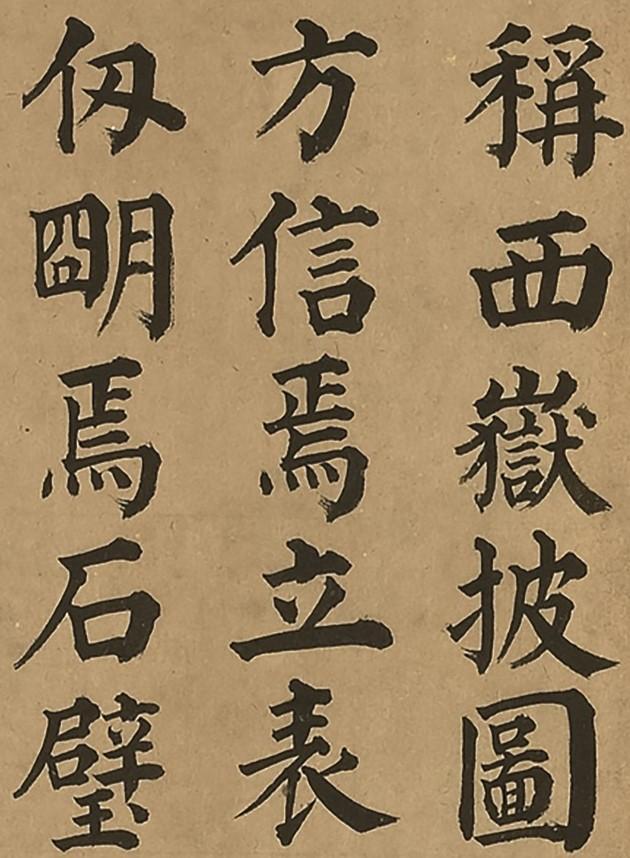 稱西嶽披圖
方信焉立表
仭朙焉石壁